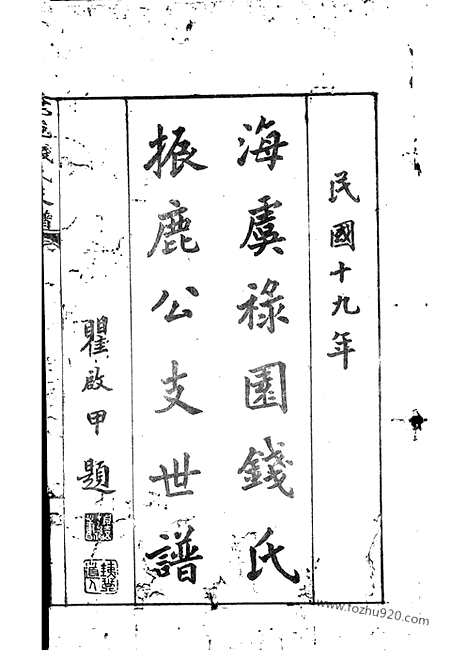 民國十九年
海虞祿園錢氏
振鹿公支世譜
瞿啟甲題
www.fozhu920.com